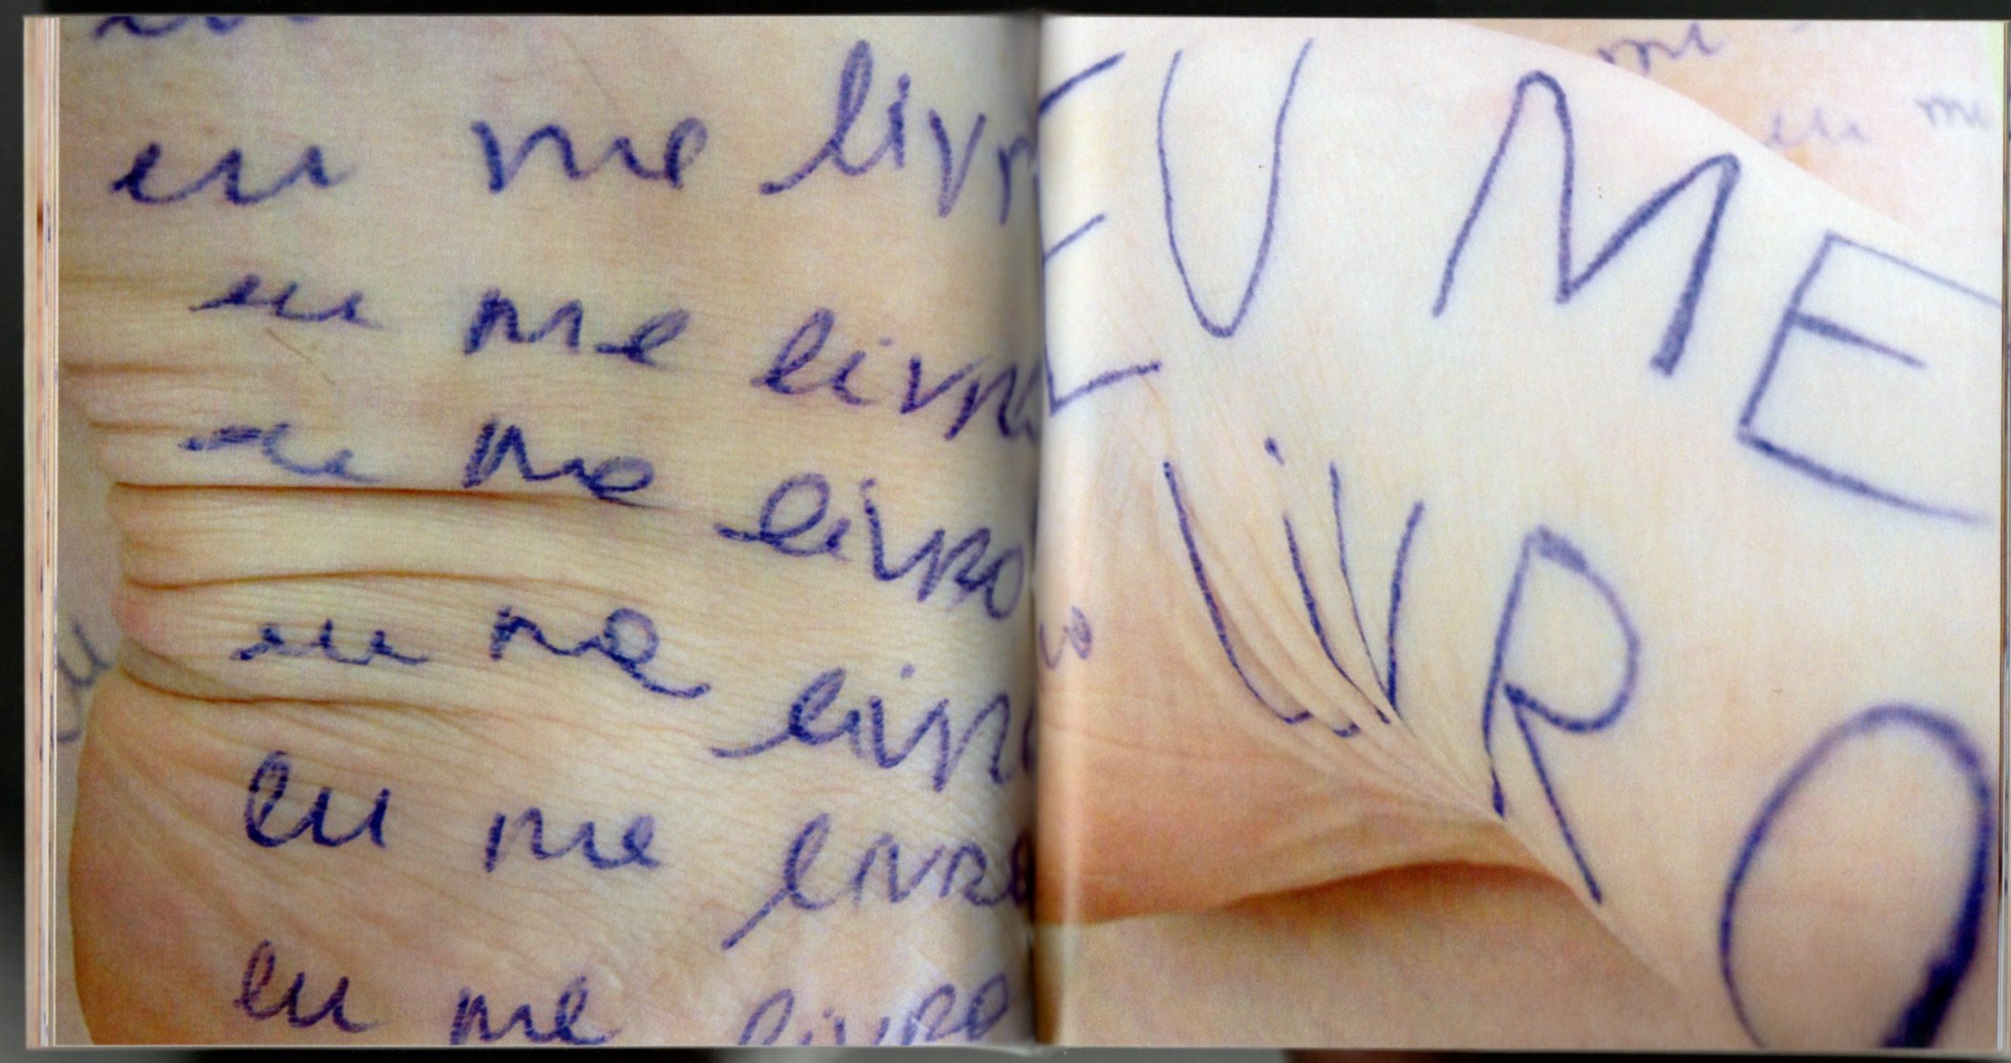 eu me livr
eu me livro
eu me livro
eu me livro
eu me livro
eu me livro
EU ME
LiVRO
me
eu me